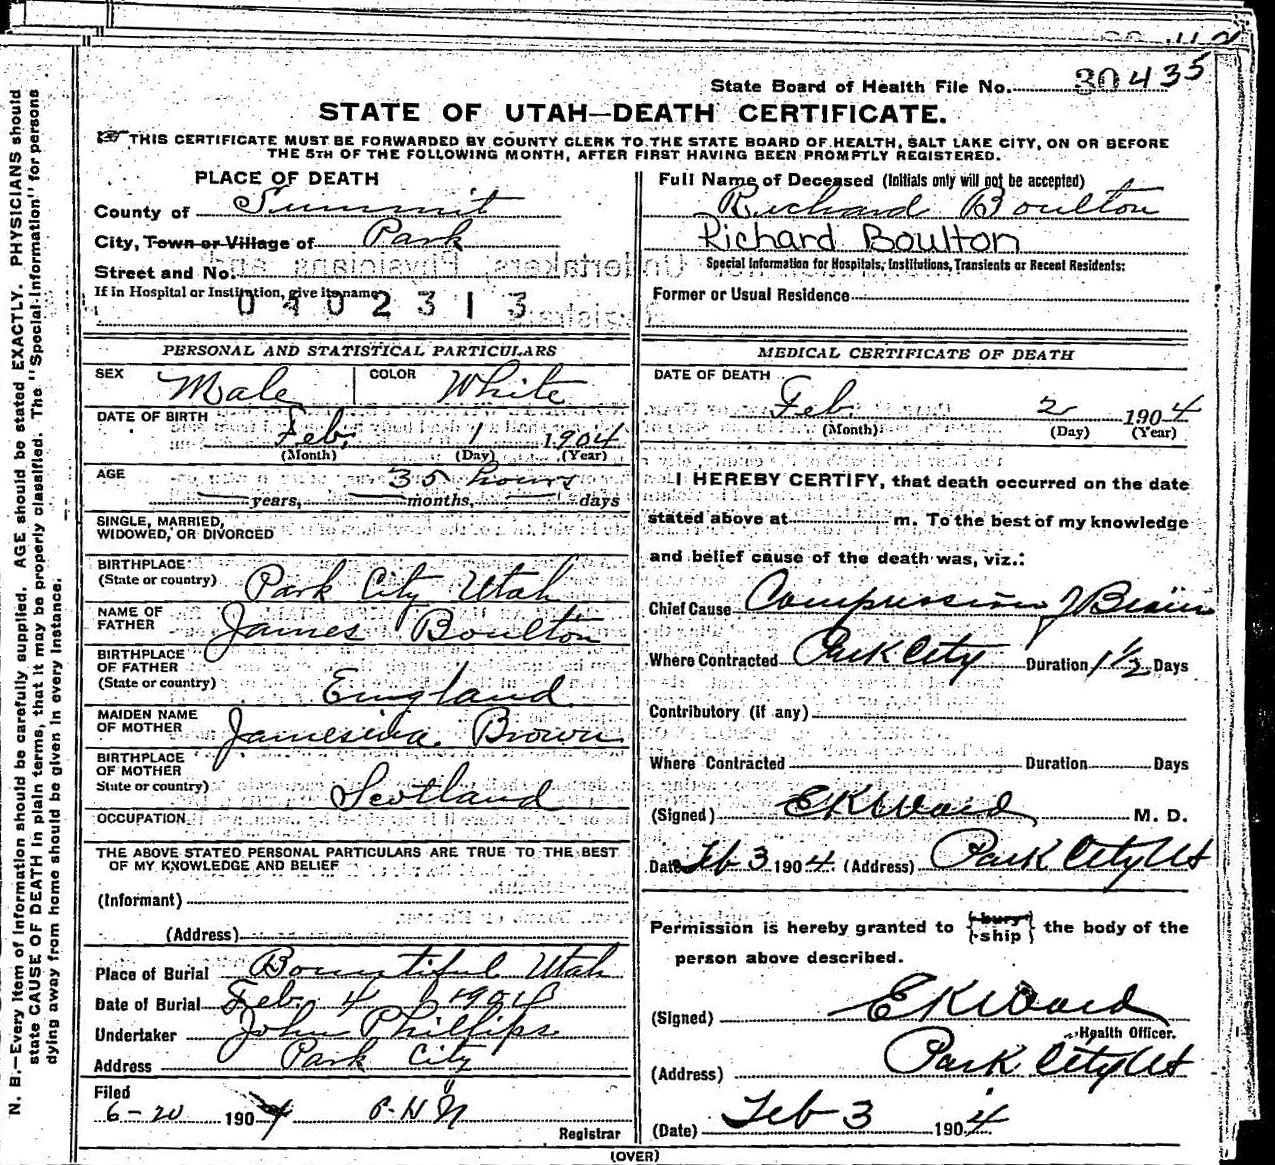 State Board of Health File No. 30435
STATE OF UTAH—DEATH CERTIFICATE.
THIS CERTIFICATE MUST BE FORWARDED BY COUNTY CLERK TO THE STATE BOARD OF HEALTH, SALT LAKE CITY, ON OR BEFORE
THE 5TH OF THE FOLLOWING MONTH, AFTER FIRST HAVING BEEN PROMPTLY REGISTERED.
PLACE OF DEATH
County of Summit
City, Town or Village of Park
Street and No.
If in Hospital or Institution, give its name
0402313
Full Name of Deceased (Initials only will not be accepted)
Richard Boulton
Richard Boulton
Special Information for Hospitals, Institutions, Transients or Recent Residents:
Former or Usual Residence
PERSONAL AND STATISTICAL PARTICULARS
SEX Male COLOR White
DATE OF BIRTH
Feb. 1 1904
(Month) (Day) (Year)
AGE 35 hours
years, months, days
SINGLE, MARRIED,
WIDOWED, OR DIVORCED
BIRTHPLACE
(State or country) Park City Utah
NAME OF
FATHER James Boulton
BIRTHPLACE
OF FATHER
(State or country) England
MAIDEN NAME
OF MOTHER Jamesina Brown
BIRTHPLACE
OF MOTHER
State or country) Scotland
OCCUPATION
THE ABOVE STATED PERSONAL PARTICULARS ARE TRUE TO THE BEST
OF MY KNOWLEDGE AND BELIEF
(Informant)
(Address)
Place of Burial Bountiful Utah
Date of Burial Feb. 4 1904
Undertaker John Phillips
Address Park City
Filed
6-20 1904
Registrar
MEDICAL CERTIFICATE OF DEATH
DATE OF DEATH
Feb 2 1904
(Month) (Day) (Year)
I HEREBY CERTIFY, that death occurred on the date
stated above at m. To the best of my knowledge
and belief cause of the death was, viz.:
Chief Cause Compression of Brain
Where Contracted Park City Duration 1 1/2 Days
Contributory (if any)
Where Contracted Duration Days
(Signed) E K Ward M. D.
Date Feb 3 1904 (Address) Park City Ut
Permission is hereby granted to {bury
ship} the body of the
person above described.
(Signed) E K Ward
Health Officer.
(Address) Park City Ut
(Date) Feb 3 1904
(OVER)
N. B.—Every item of information should be carefully supplied. AGE should be stated EXACTLY. PHYSICIANS should
state CAUSE OF DEATH in plain terms, that it may be properly classified. The "Special Information" for persons
dying away from home should be given in every instance.